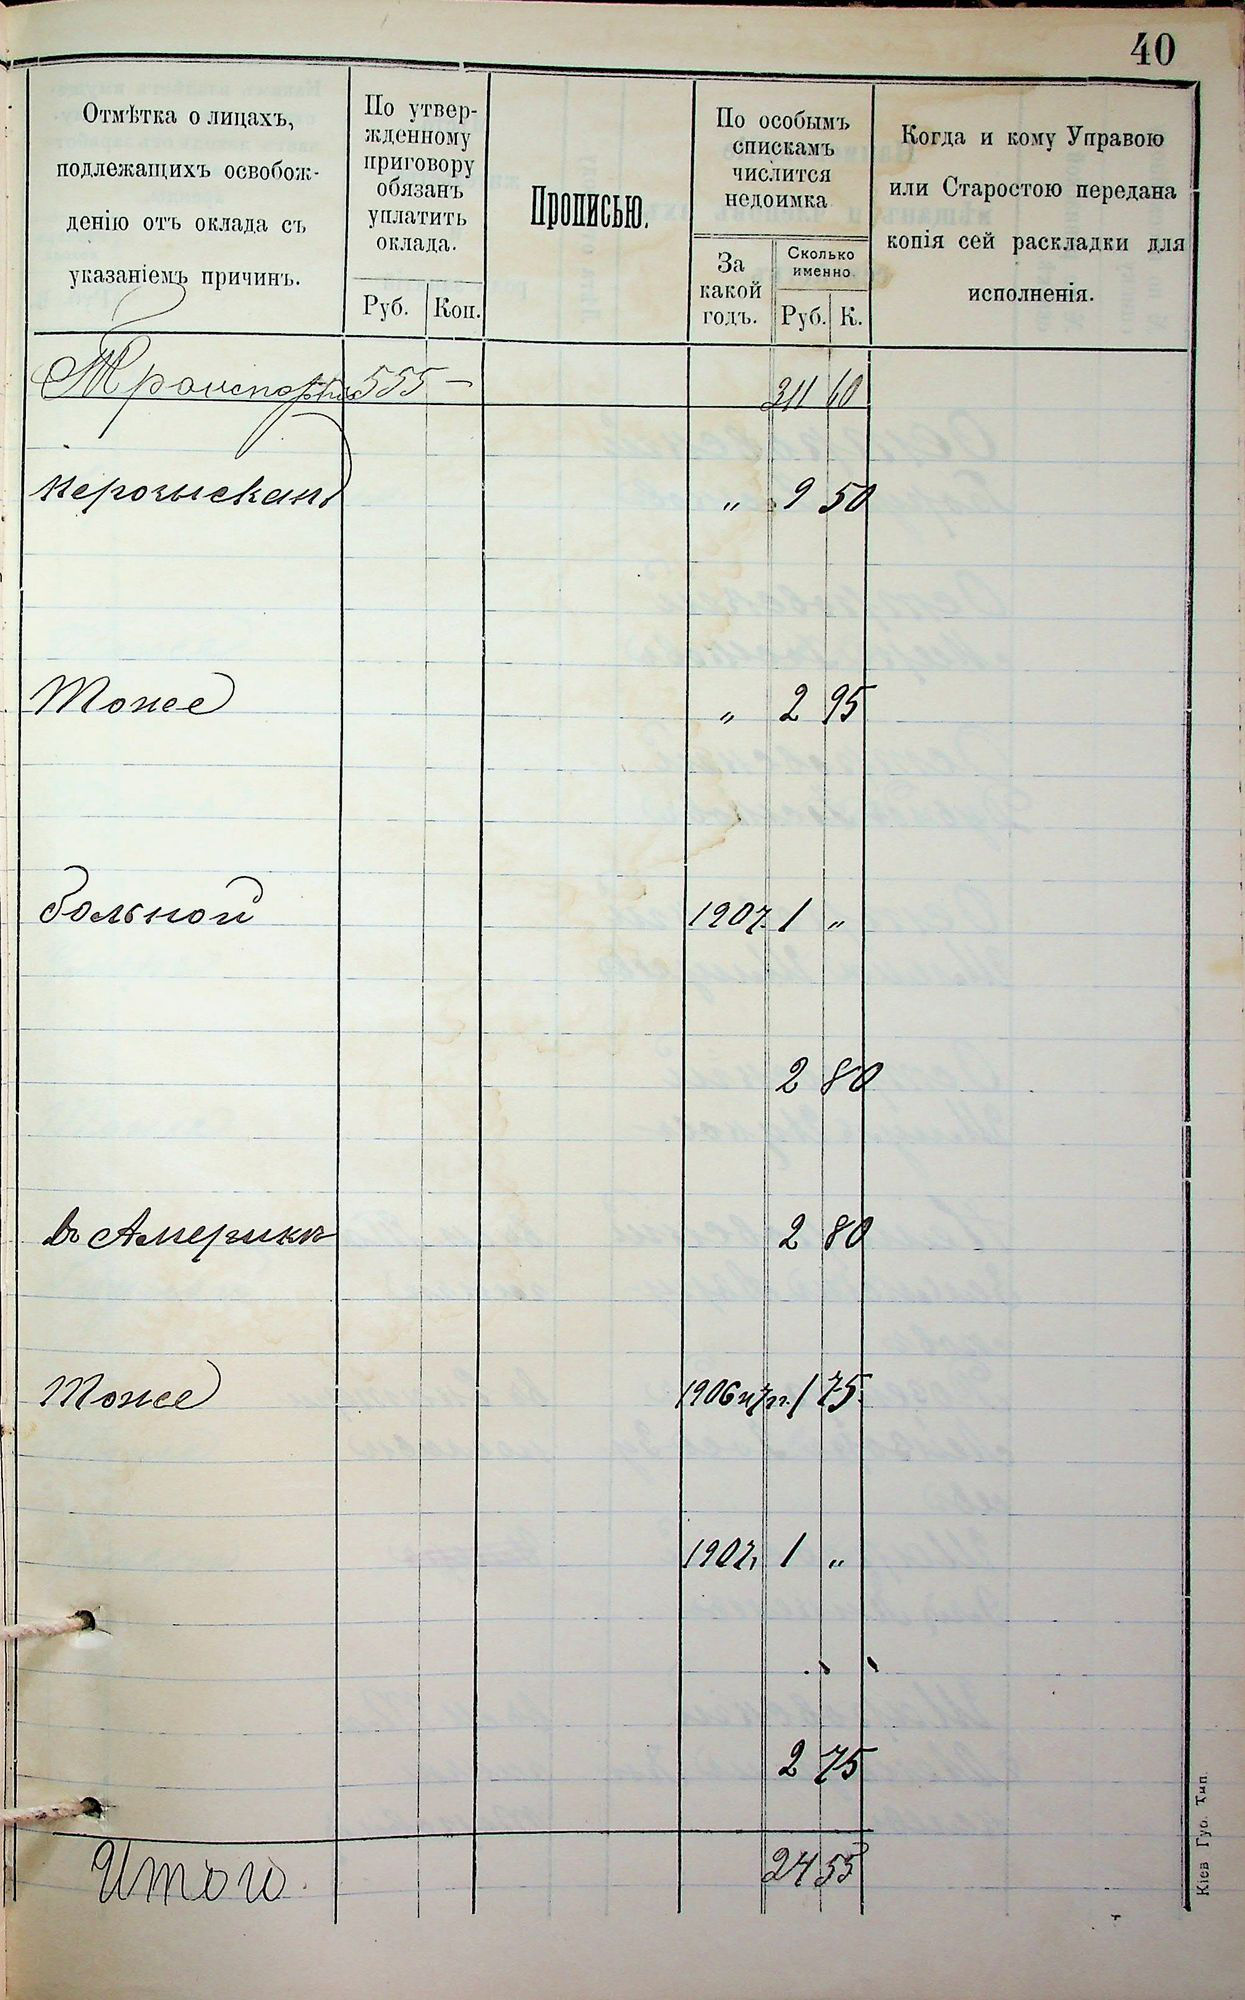 40
Отмѣтка о лицахъ,
подлежащихъ освобож-
денію отъ оклада съ
указаніемъ причинъ.
По утвер-
жденному
приговору
обязанъ
уплатить
оклада.
Руб. Коп.
Прописью.
По особымъ
спискамъ
числится
недоимка
За
какой
годъ.
Сколько
именно
Руб. К.
Когда и кому Управою
или Старостою передана
копія сей раскладки для
исполненія.
Транспортъ 555 — 311 60
неразысканъ " 9 50
Тоже " 2 95
больной 1907. 1 "
2 80
въ Америкѣ 2 80
Тоже 1906 и 7 гг. 1 75.
1907. 1 "
2 75
Итого 24 55
Кіев Губ. Тип.